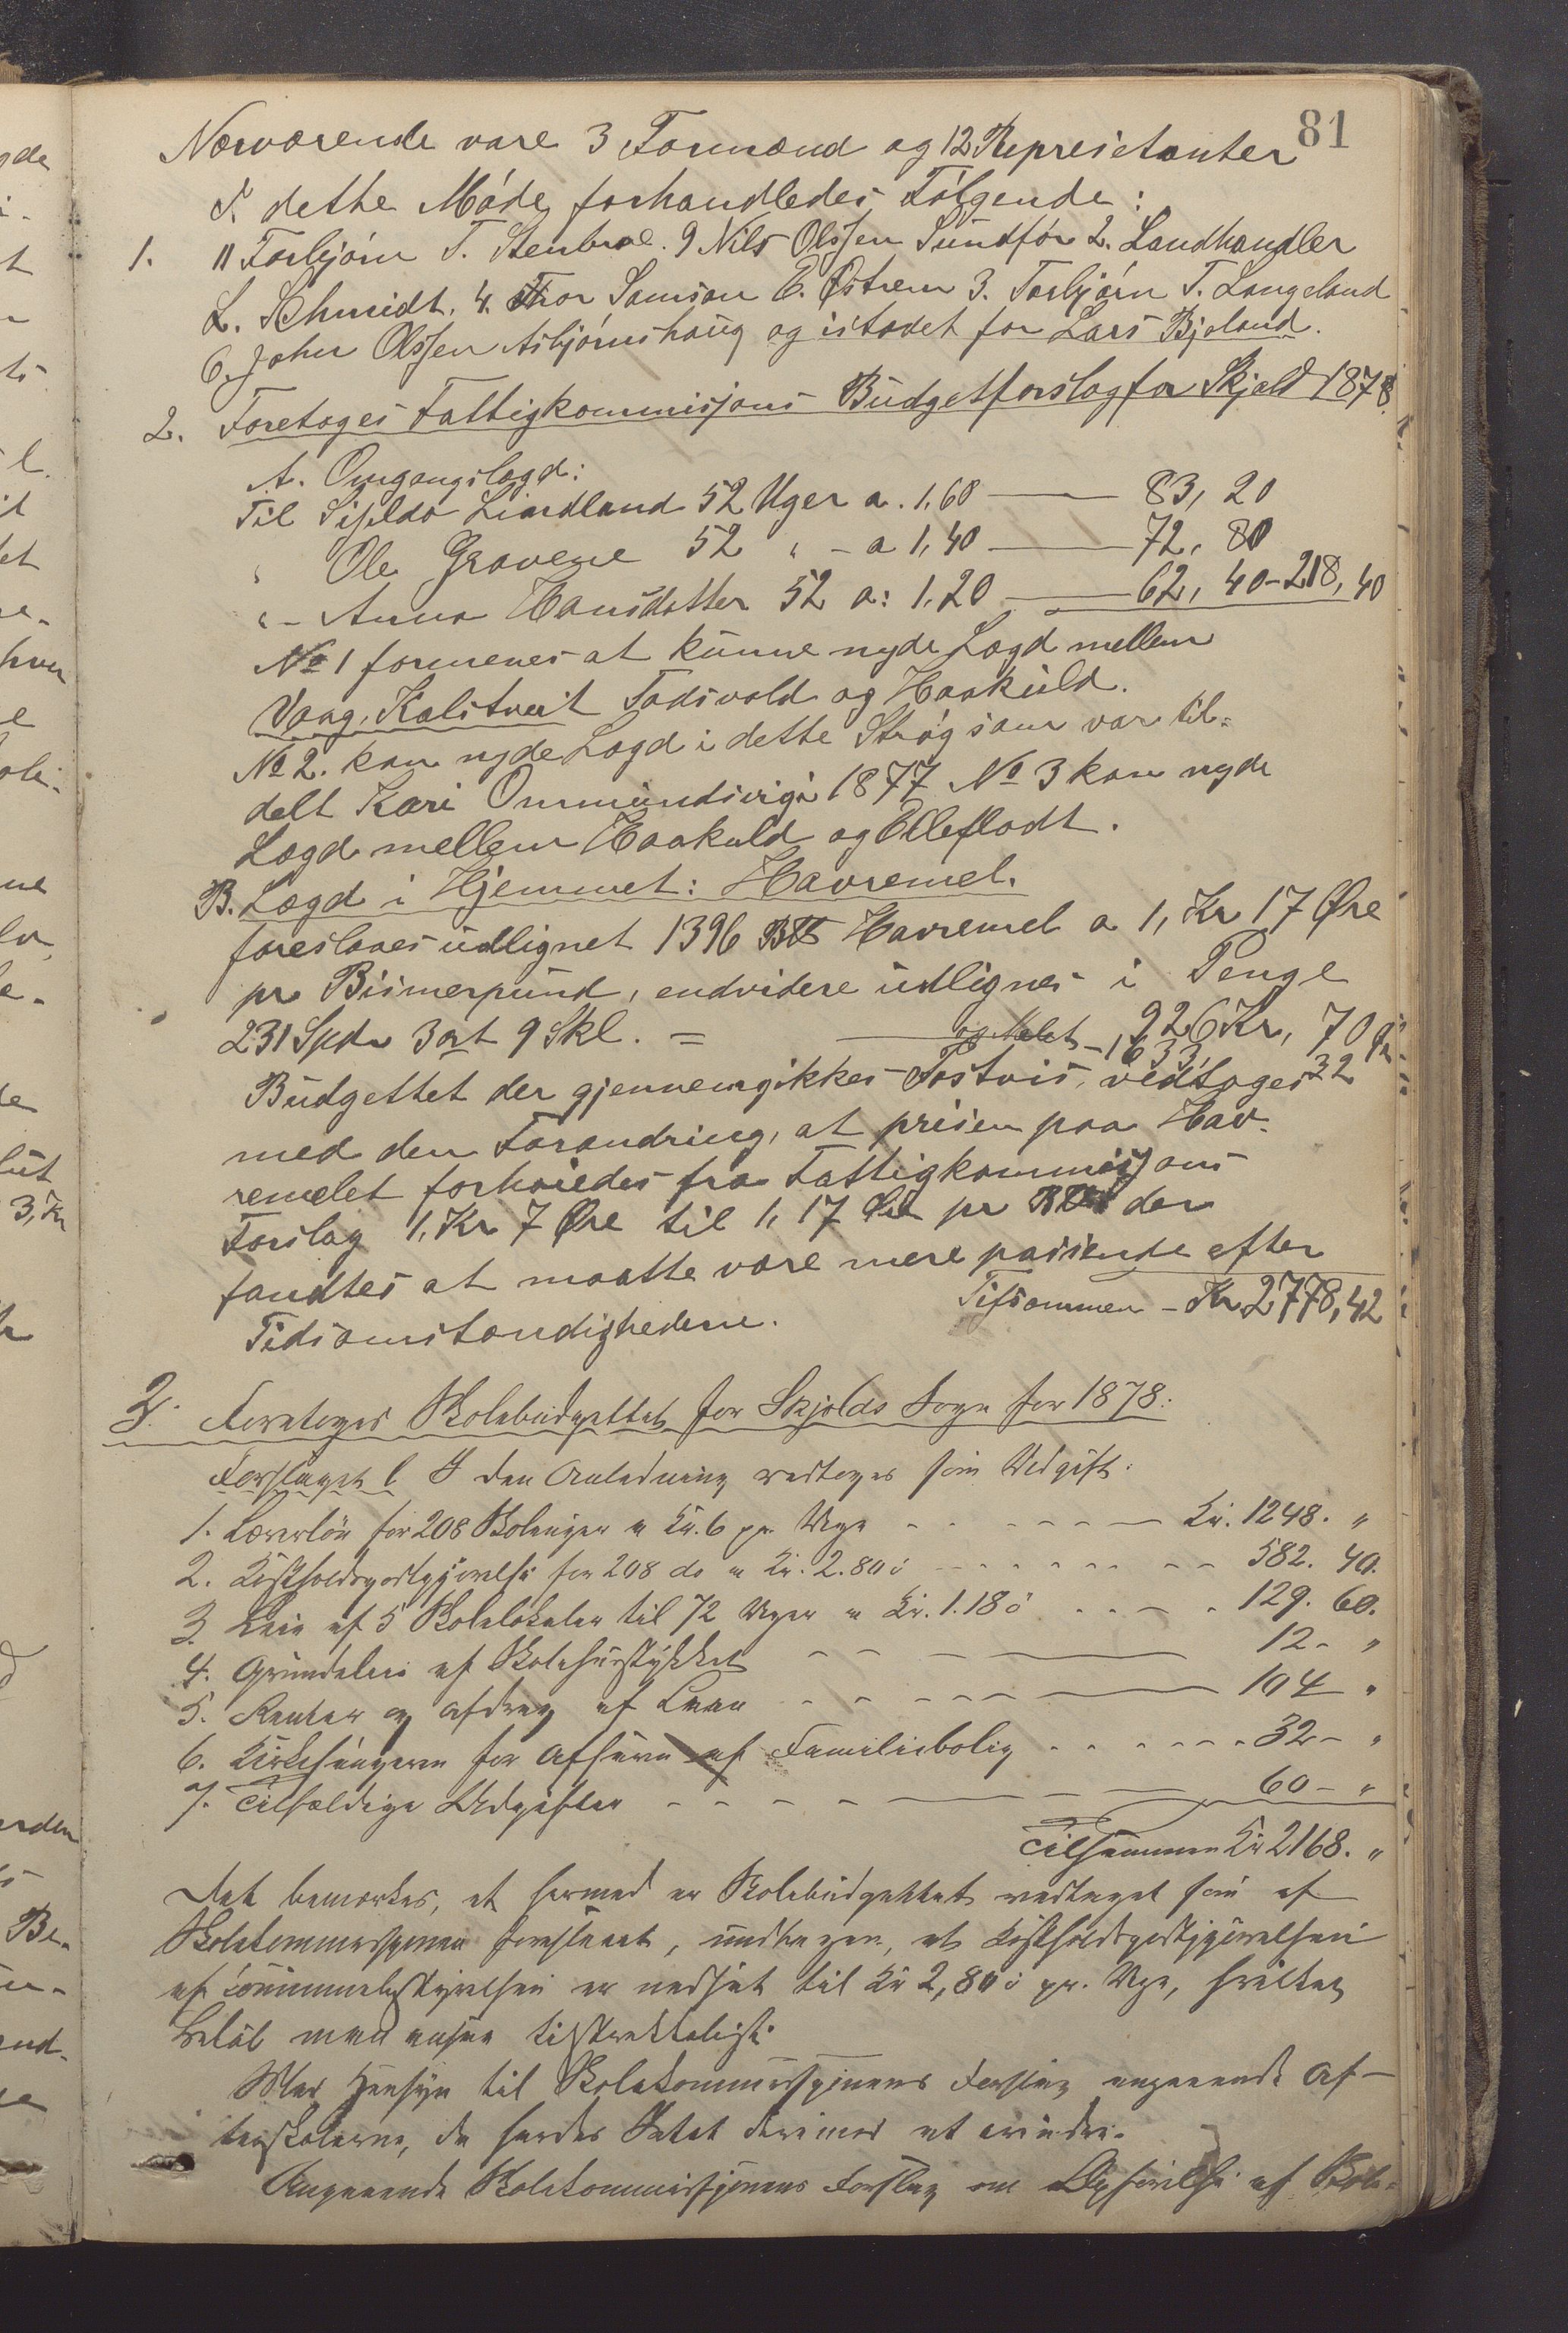 81
Nærværende vare 3 Formænd og 12 Represetanter
I dette Møde forhandledes Følgende:
1. 11 Torbjørn T. Stenbroe. 9 Nils Olssen Sundfør 2. Landhandler
L. Schmidt. 4. Thor Samson E. Østrem 3. Torbjørn T. Langeland
6. John Olssen Asbjørnshaug og istadet for Lars Bjeland.
2. Foretoges Fattigkommisjons Budgetforslag for Skjold 1878.
A. Omgangslægd:
Til Sissilda Liardland 52 Uger a. 1,60 — 83, 20
" Ole Gravene 52 " - a 1,40 — 72, 80
" - Anna Hansdatter 52 a: 1,20 — 62, 40 - 218, 40
No 1 formenes at kunne nyde Lægd mellem
Vaag, Kalstveit Tadsvold og Haakuld.
No 2. kan nyde Lægd i dette Strøg som var til-
delt Kari Ommundsvig i 1877 No 3 kan nyde
Lægd mellem Haakuld og Ellefladt.
B. Lægd i Hjemmet: Havremel.
foreslaaes udlignet 1396 B℔ Havremel a 1, Kr 17 Øre
pr Bismerpund, endvidere udlignes i Penge
231 Spdr 3 ort 9 Skl. = — 926 Kr, 70 Ør
og Melet - 1633, 32
Budgettet der gjennemgikkes Postvis, vedtoges
med den Forandring, at prisen paa Hav-
remelet forhøiedes fra Fattigkommisjons
Forslag 1, Kr 7 Øre til 1, 17 Øre pr B℔ der
fandtes at maatte være mere passende efter
Tidsomstændighederne.
Tilsammen - Kr 2778,42
3. Foretoges Skolebudgettet for Skjolds Sogn for 1878:
Forslaget l. I den Anledning vedtoges som Udgift:
1. Lærerløn for 208 Skoleuger a Kr. 6 pr. Uge - - - Kr. 1248. "
2. Kostholdsgodtgjørelse for 208 do a Kr. 2.80 ø - - - 582. 40.
3. Leie af 5 Skolelokaler til 72 Uger a Kr. 1.18 ø - - - 129. 60.
4. Grundleie af Skolehusstykket - - - 12 - "
5. Renter og afdrag af Laan - - - 104 "
6. Kirkesangeren for Afsavn af Familiebolig - - - 32 - "
7. Tilfældige Udgifter - - - 60 - "
Tilsammen Kr 2168. "
Det bemærkes, at hermed er Skolebudgettet vedtaget som af
Skolekommissionen foreslaaet, undtagen, at Kostholdsgodtgjørelsen
af Communebestyrelsen er nedsat til Kr 2,80 ø pr. Uge, hvilket
Beløb man ansaa tilstrækkeligt.
Med Hensyn til Skolekommissionens Forslag angaaende Af-
tenskolerne, da havdes Intet derimod at erindre.
Angaaende Skolekommissionens Forslag om Opførelse af Skole-